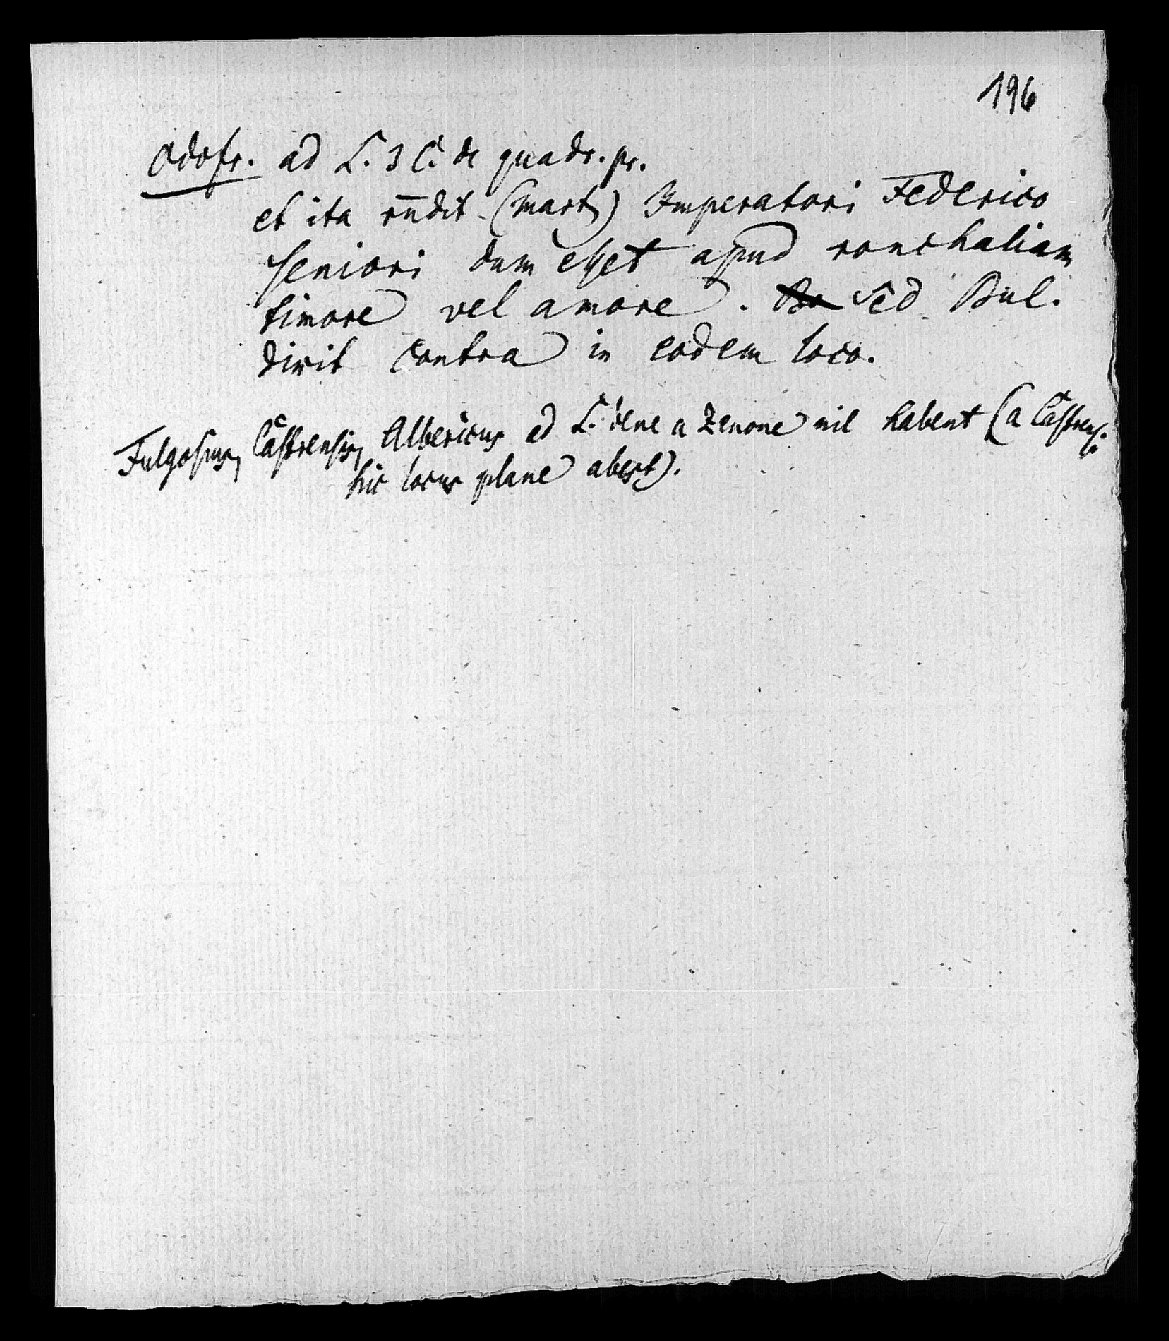 196
Odofr. ad L. 3 C. de quadr. pr.
et ita rn̄dit (Mart) Imperatori Federico
seniori dum esset apud ronchaliam
timore vel amore. Sed Bul.
dixit contra in eodem loco.
Fulgosius, Castrensis, Albericus ad L. bene a Zenone nil habent (a Castrensi
hic locus plane abest).